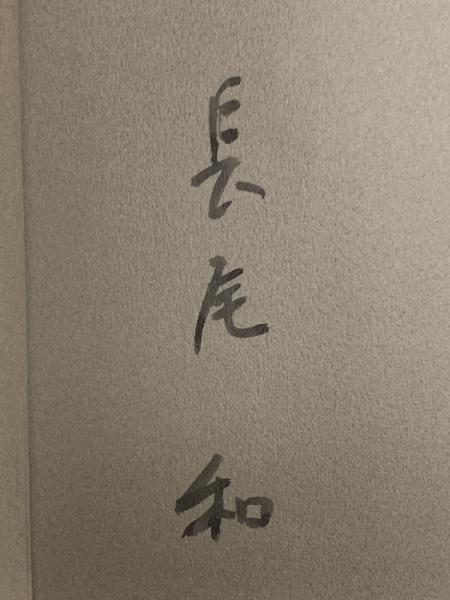 長尾和